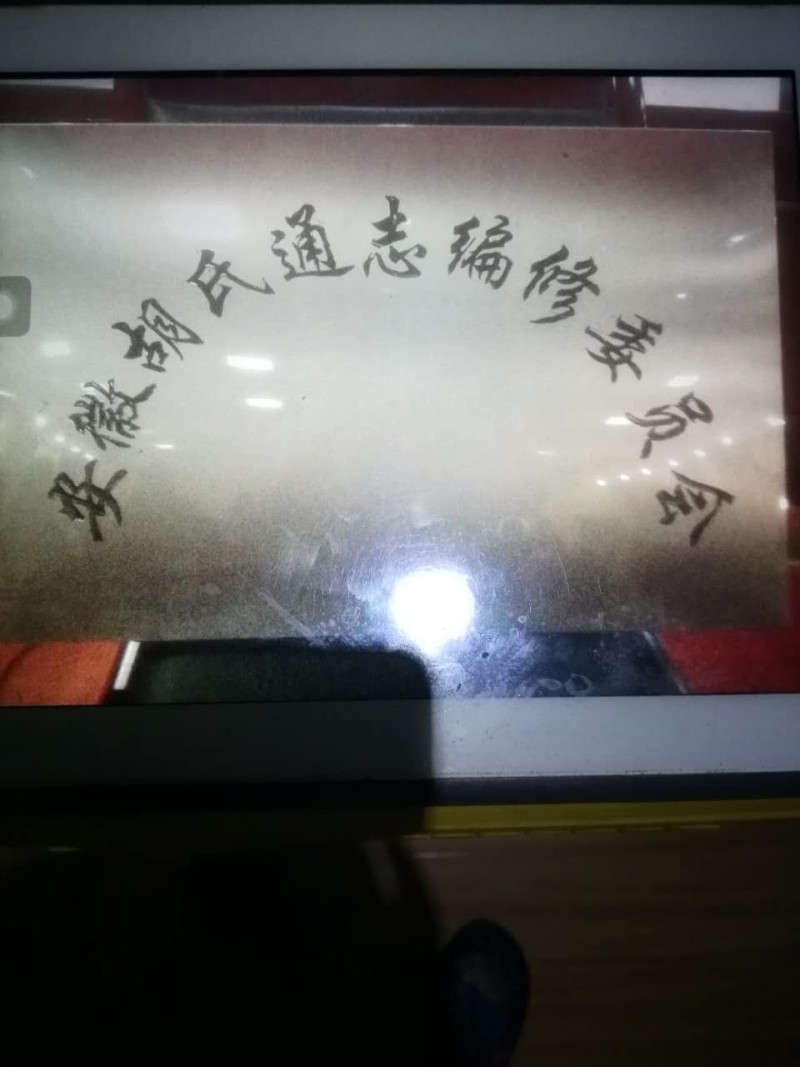 安徽胡氏通志编修委员会